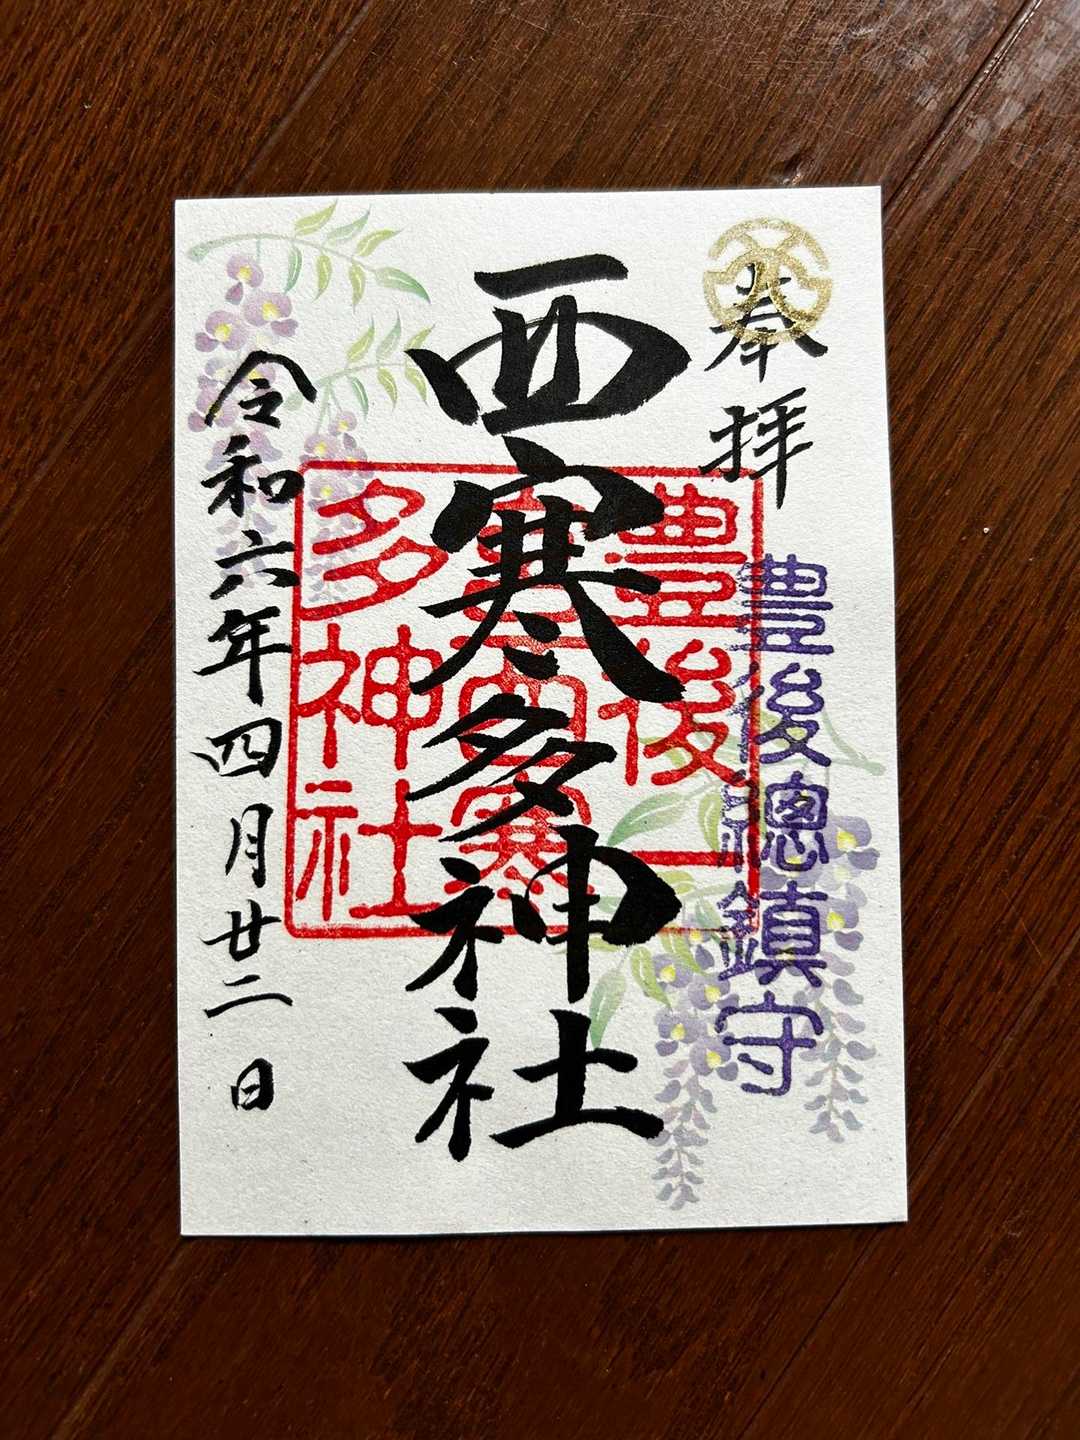 奉拝
豊後總鎮守
西寒多神社
豊後一
宮西寒
多神社
令和六年四月廿二日